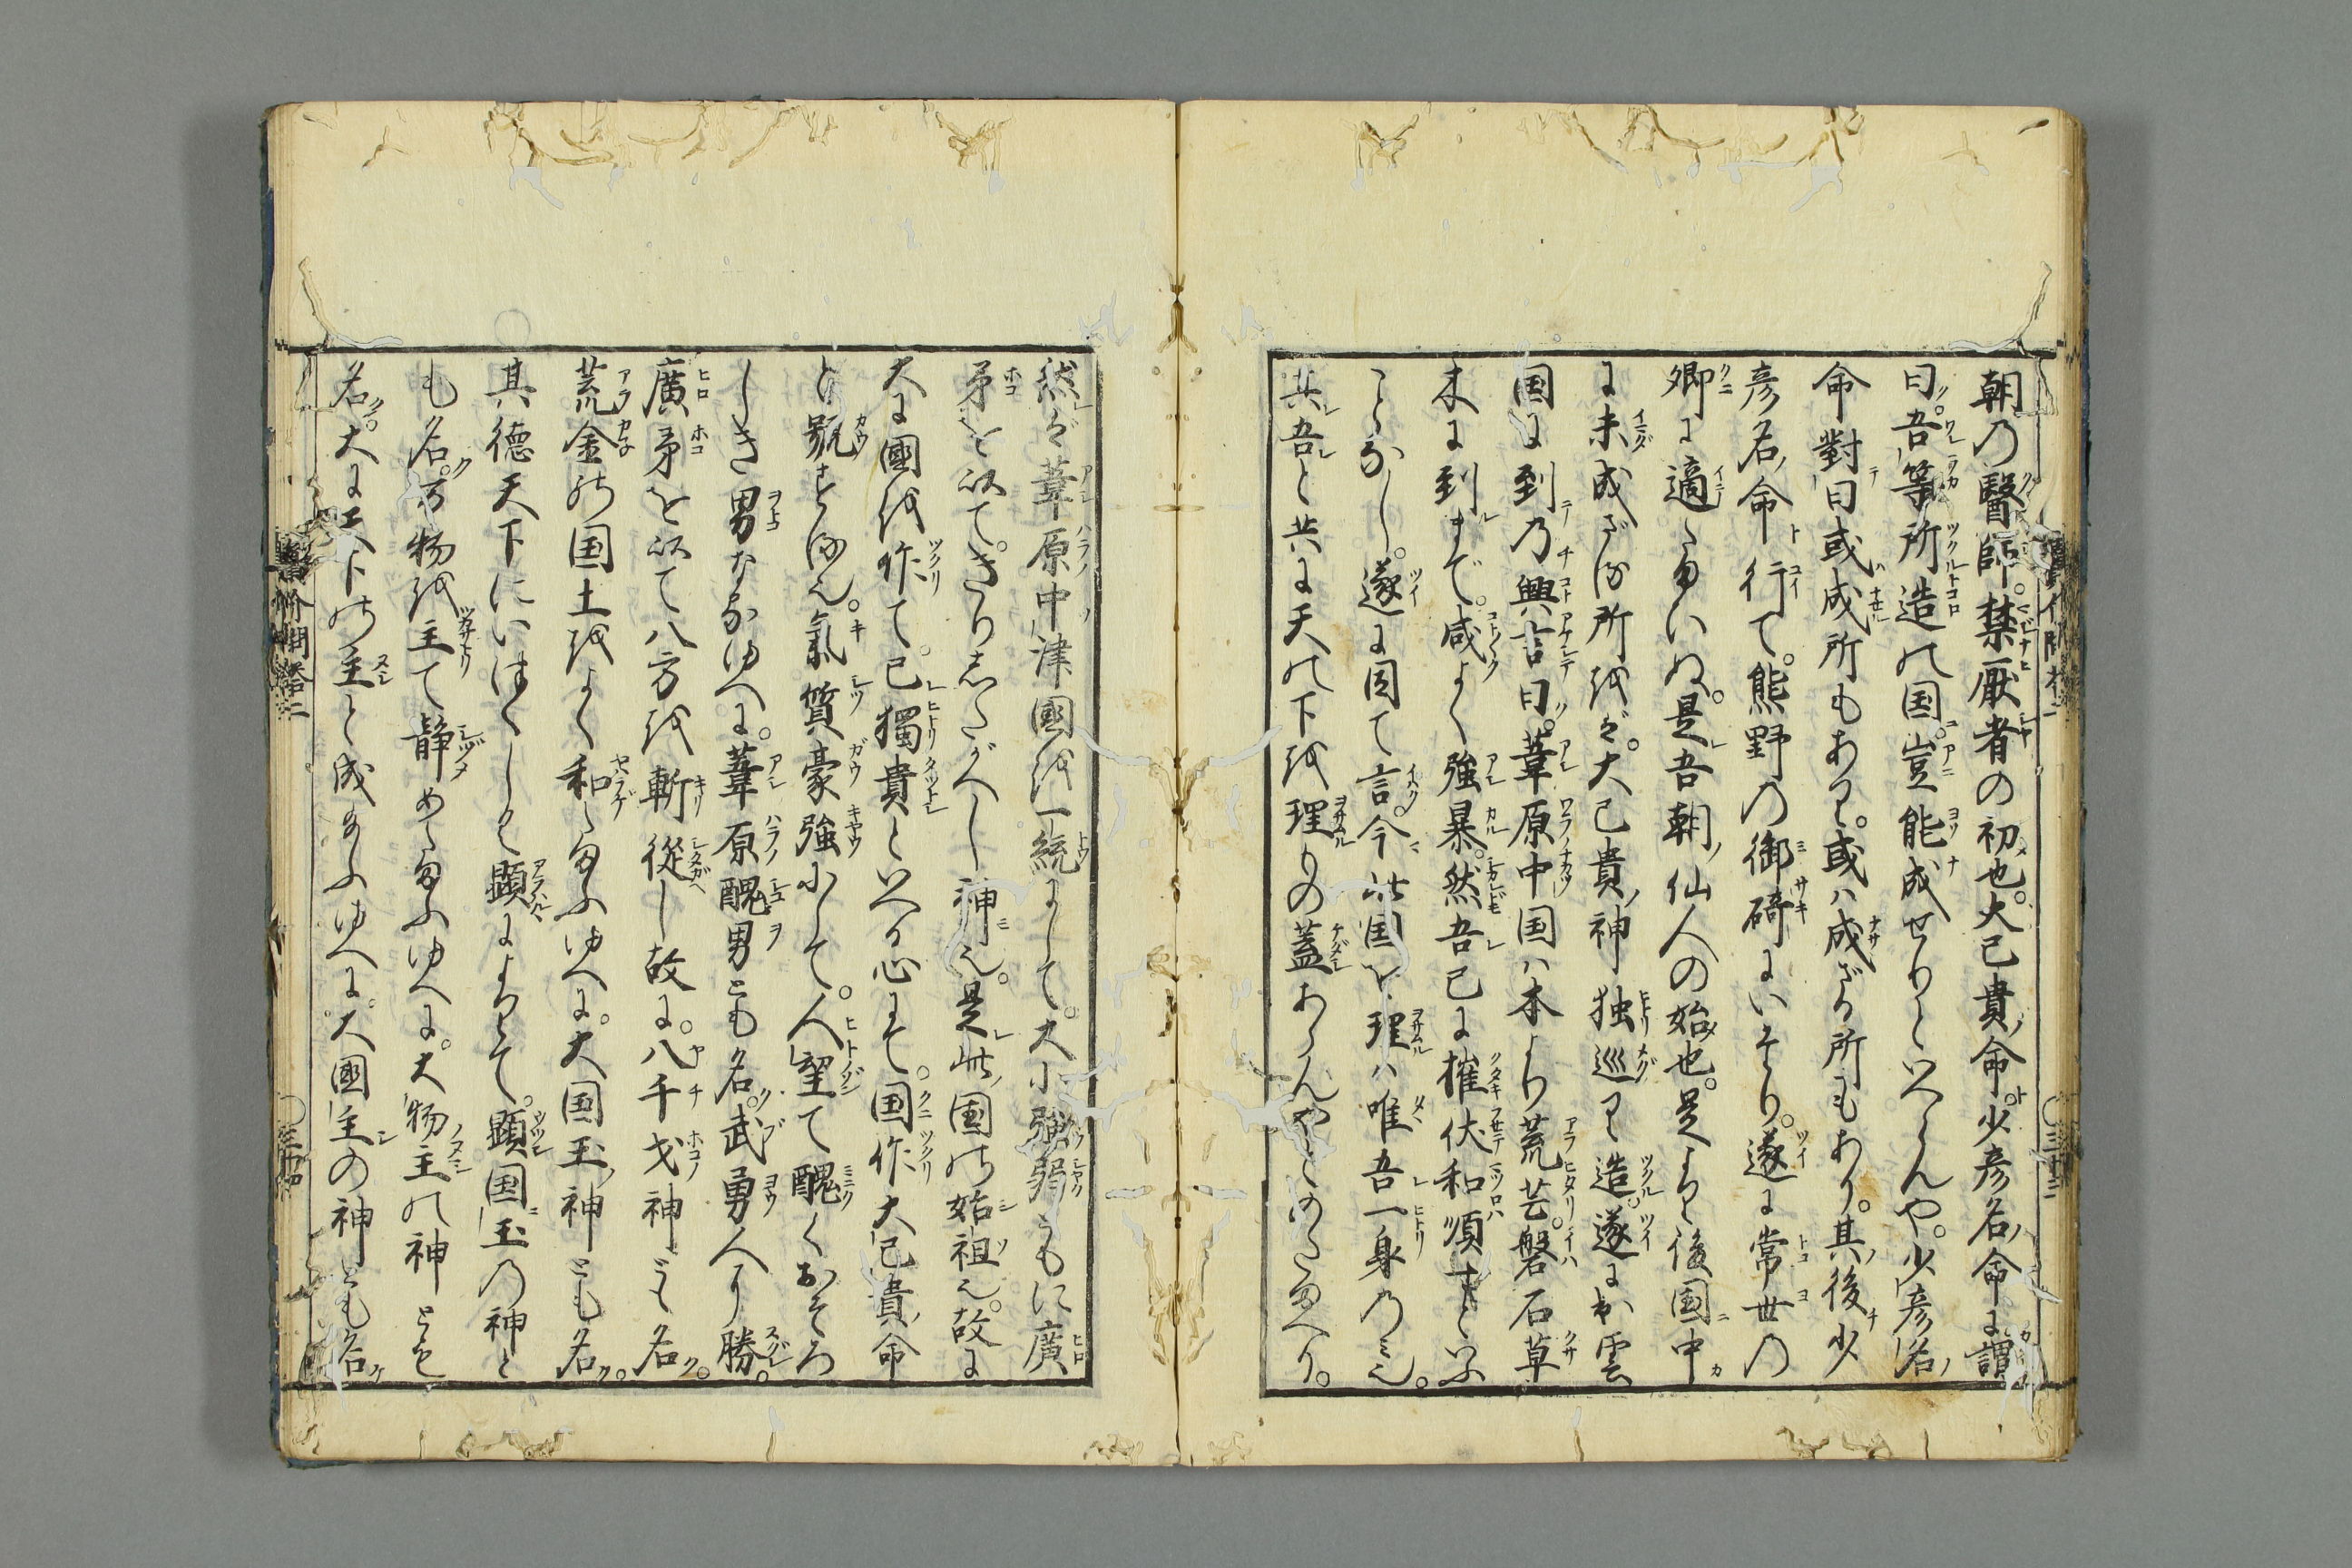 朝乃醫師。禁厭者の初也。大己貴命。少彦名命に謂
曰。吾等所造の国。豈能成せりといへらんや。少彦名
命對曰或成所もあり。或ハ成ざる所もあり。其後少
彦名命行て。熊野乃御碕にいたり。遂に常世乃
郷に適たまいぬ。是吾朝仙人の始也。是より後国中
に未成ざる所をバ。大己貴神独巡り造。遂に出雲
国に到乃興言曰。葦原中国ハ本より荒芒。磐石草
木に到まで。咸よく強暴。然吾已に摧伏和順すといふ
ことなし。遂に因て言。今此国を理ハ唯吾一身乃ミ也。
其吾と共に天の下を理もの蓋あらんやとのたまへり。
然バ葦原中津國を一統にして。大小強弱ともに廣
矛を以て。きりしたがへし神也。是此国の始祖也。故に
大に國を作て。己獨貴といへる心にて。国作大己貴命
と號もうす也。氣質豪強にして。人望て醜くおそろ
しき男なるゆへに。葦原醜男とも名。武勇人に勝。
廣矛を以て八方を斬從し故に。八千戈神とも名。
荒金の国土をよく和たまふゆへに。大国玉神とも名。
其徳天下にいはくしく顕によりて。顕国玉乃神と
も名。万物を主て静めたまふゆへに。大物主の神とも
名。大に天下の主と成給ふゆへに。大國主の神とも名